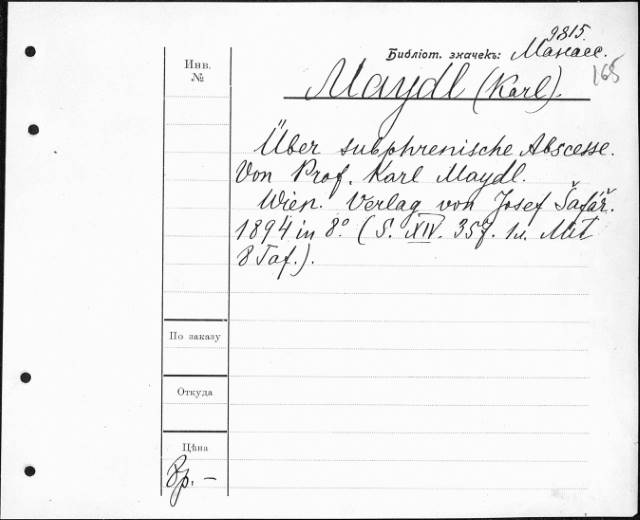 9815.
Библіот. значекъ: Манасс.
165
Инв.
№
Maydl (Karl).
Über subphrenische Abscesse.
Von Prof. Karl Maydl.
Wien. Verlag von Josef Šafář.
1894 in 8° (S. XIV. 357. u. Mit
8 Taf.).
По заказу
Откуда
Цѣна
8р. -